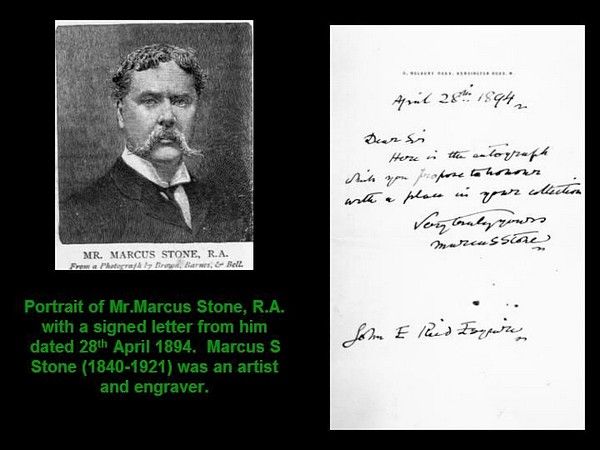 MR. MARCUS STONE, R.A.
From a Photograph by Brown, Barnes, & Bell.
Portrait of Mr.Marcus Stone, R.A.
with a signed letter from him
dated 28th April 1894. Marcus S
Stone (1840-1921) was an artist
and engraver.
8, MELBURY ROAD, KENSINGTON ROAD, W.
April 28th 1894
Dear Sir
Here is the autograph
which you propose to honour
with a place in your collection
Very truly yours
Marcus Stone
John E Reid Esquire